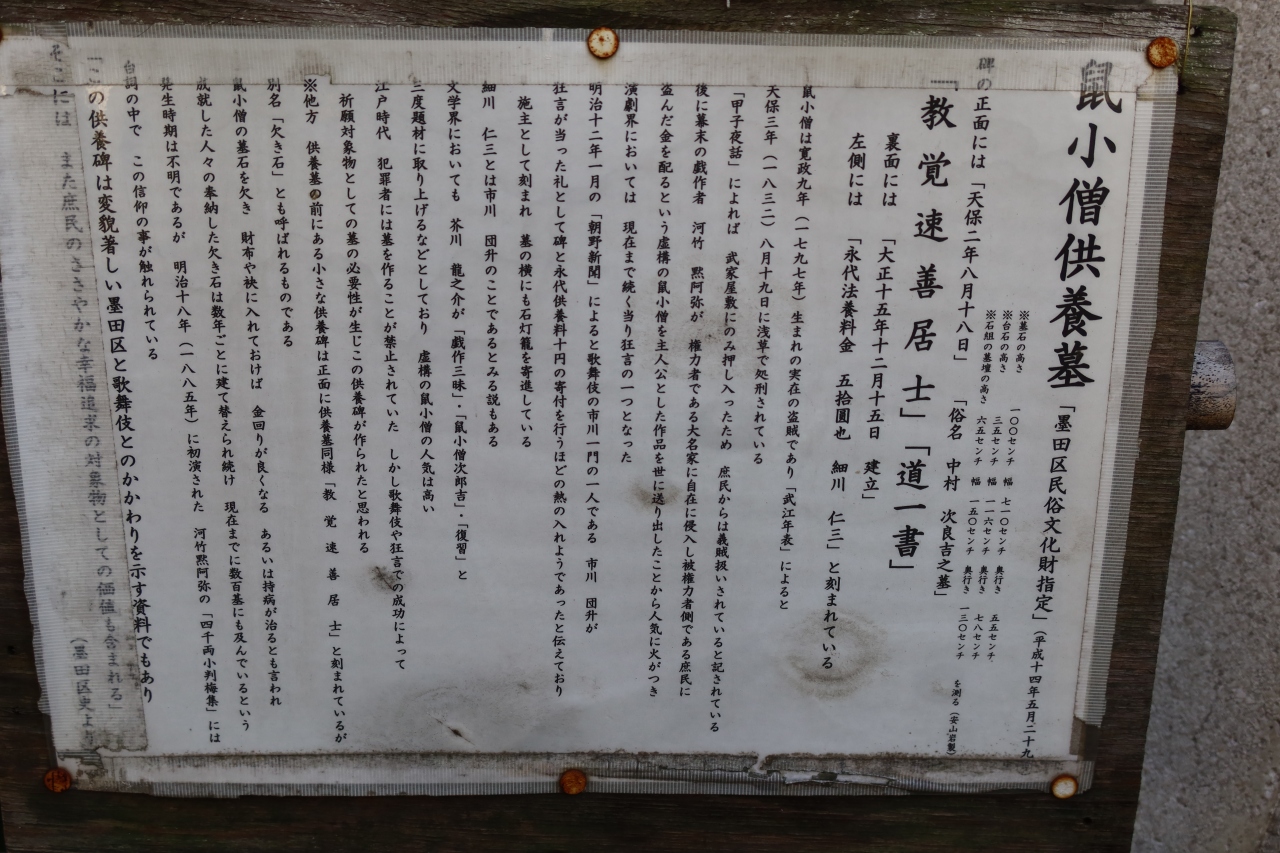 鼠小僧供養墓 「墨田区民俗文化財指定」(平成十四年五月二十九
※墓石の高さ 一〇〇センチ 幅 七一〇センチ 奥行き 五五センチ
※台石の高さ 三五センチ 幅 一一六センチ 奥行き 七八センチ
※石組の墓壇の高さ 六五センチ 幅 一五〇センチ 奥行き 一三〇センチ を測る(安山岩製)
碑の正面には 「天保二年八月十八日」 「俗名 中村 次良吉之墓」
「教覚速善居士」「道一書」
裏面には 「大正十五年十二月十五日 建立」
左側には 「永代法養料金 五拾圓也 細川 仁三」と刻まれている
鼠小僧は寛政九年(一七九七年)生まれの実在の盗賊であり「武江年表」によると
天保三年(一八三二)八月十九日に浅草で処刑されている
「甲子夜話」によれば 武家屋敷にのみ押し入ったため 庶民からは義賊扱いされていると記されている
後に幕末の戯作者 河竹 黙阿弥が 権力者である大名家に自在に侵入し被権力者側である庶民に
盗んだ金を配るという虚構の鼠小僧を主人公とした作品を世に送り出したことから人気に火がつき
演劇界においては 現在まで続く当り狂言の一つとなった
明治十二年一月の「朝野新聞」によると歌舞伎の市川一門の一人である 市川 団升が
狂言が当った礼として碑と永代供養料十円の寄付を行うほどの熱の入れようであったと伝えており
施主として刻まれ 墓の横にも石灯籠を寄進している
細川 仁三とは市川 団升のことであるとみる説もある
文学界においても 芥川 龍之介が「戯作三昧」・「鼠小僧次郎吉」・「復習」と
三度題材に取り上げるなどとしており 虚構の鼠小僧の人気は高い
江戸時代 犯罪者には墓を作ることが禁止されていた しかし歌舞伎や狂言での成功によって
祈願対象物としての墓の必要性が生じこの供養碑が作られたと思われる
※他方 供養墓の前にある小さな供養碑は正面に供養墓同様「教覚速善居士」と刻まれているが
別名「欠き石」とも呼ばれるものである
鼠小僧の墓石を欠き 財布や袂に入れておけば 金回りが良くなる あるいは持病が治るとも言われ
成就した人々の奉納した欠き石は数年ごとに建て替えられ続け 現在までに数百墓にも及んでいるという
発生時期は不明であるが 明治十八年(一八八五年)に初演された 河竹黙阿弥の「四千両小判梅集」には
台詞の中で この信仰の事が触れられている
「この供養碑は変貌著しい墨田区と歌舞伎とのかかわりを示す資料でもあり
そこには また庶民のささやかな幸福追求の対象物としての価値も含まれる」
(墨田区史より